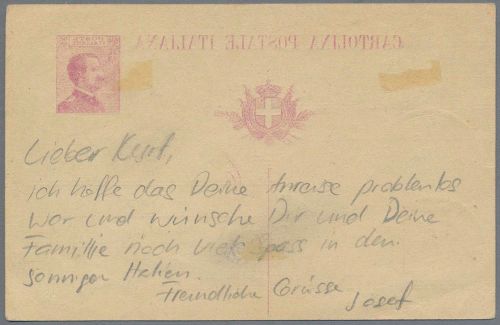 CARTOLINA POSTALE ITALIANA
Lieber Kurt,
ich hoffe das Deine Anreise problemlos
war und wünsche Dir und Deine
Familie noch viele Spass in den
sonnigen Italien.
Freundliche Grüsse
Josef